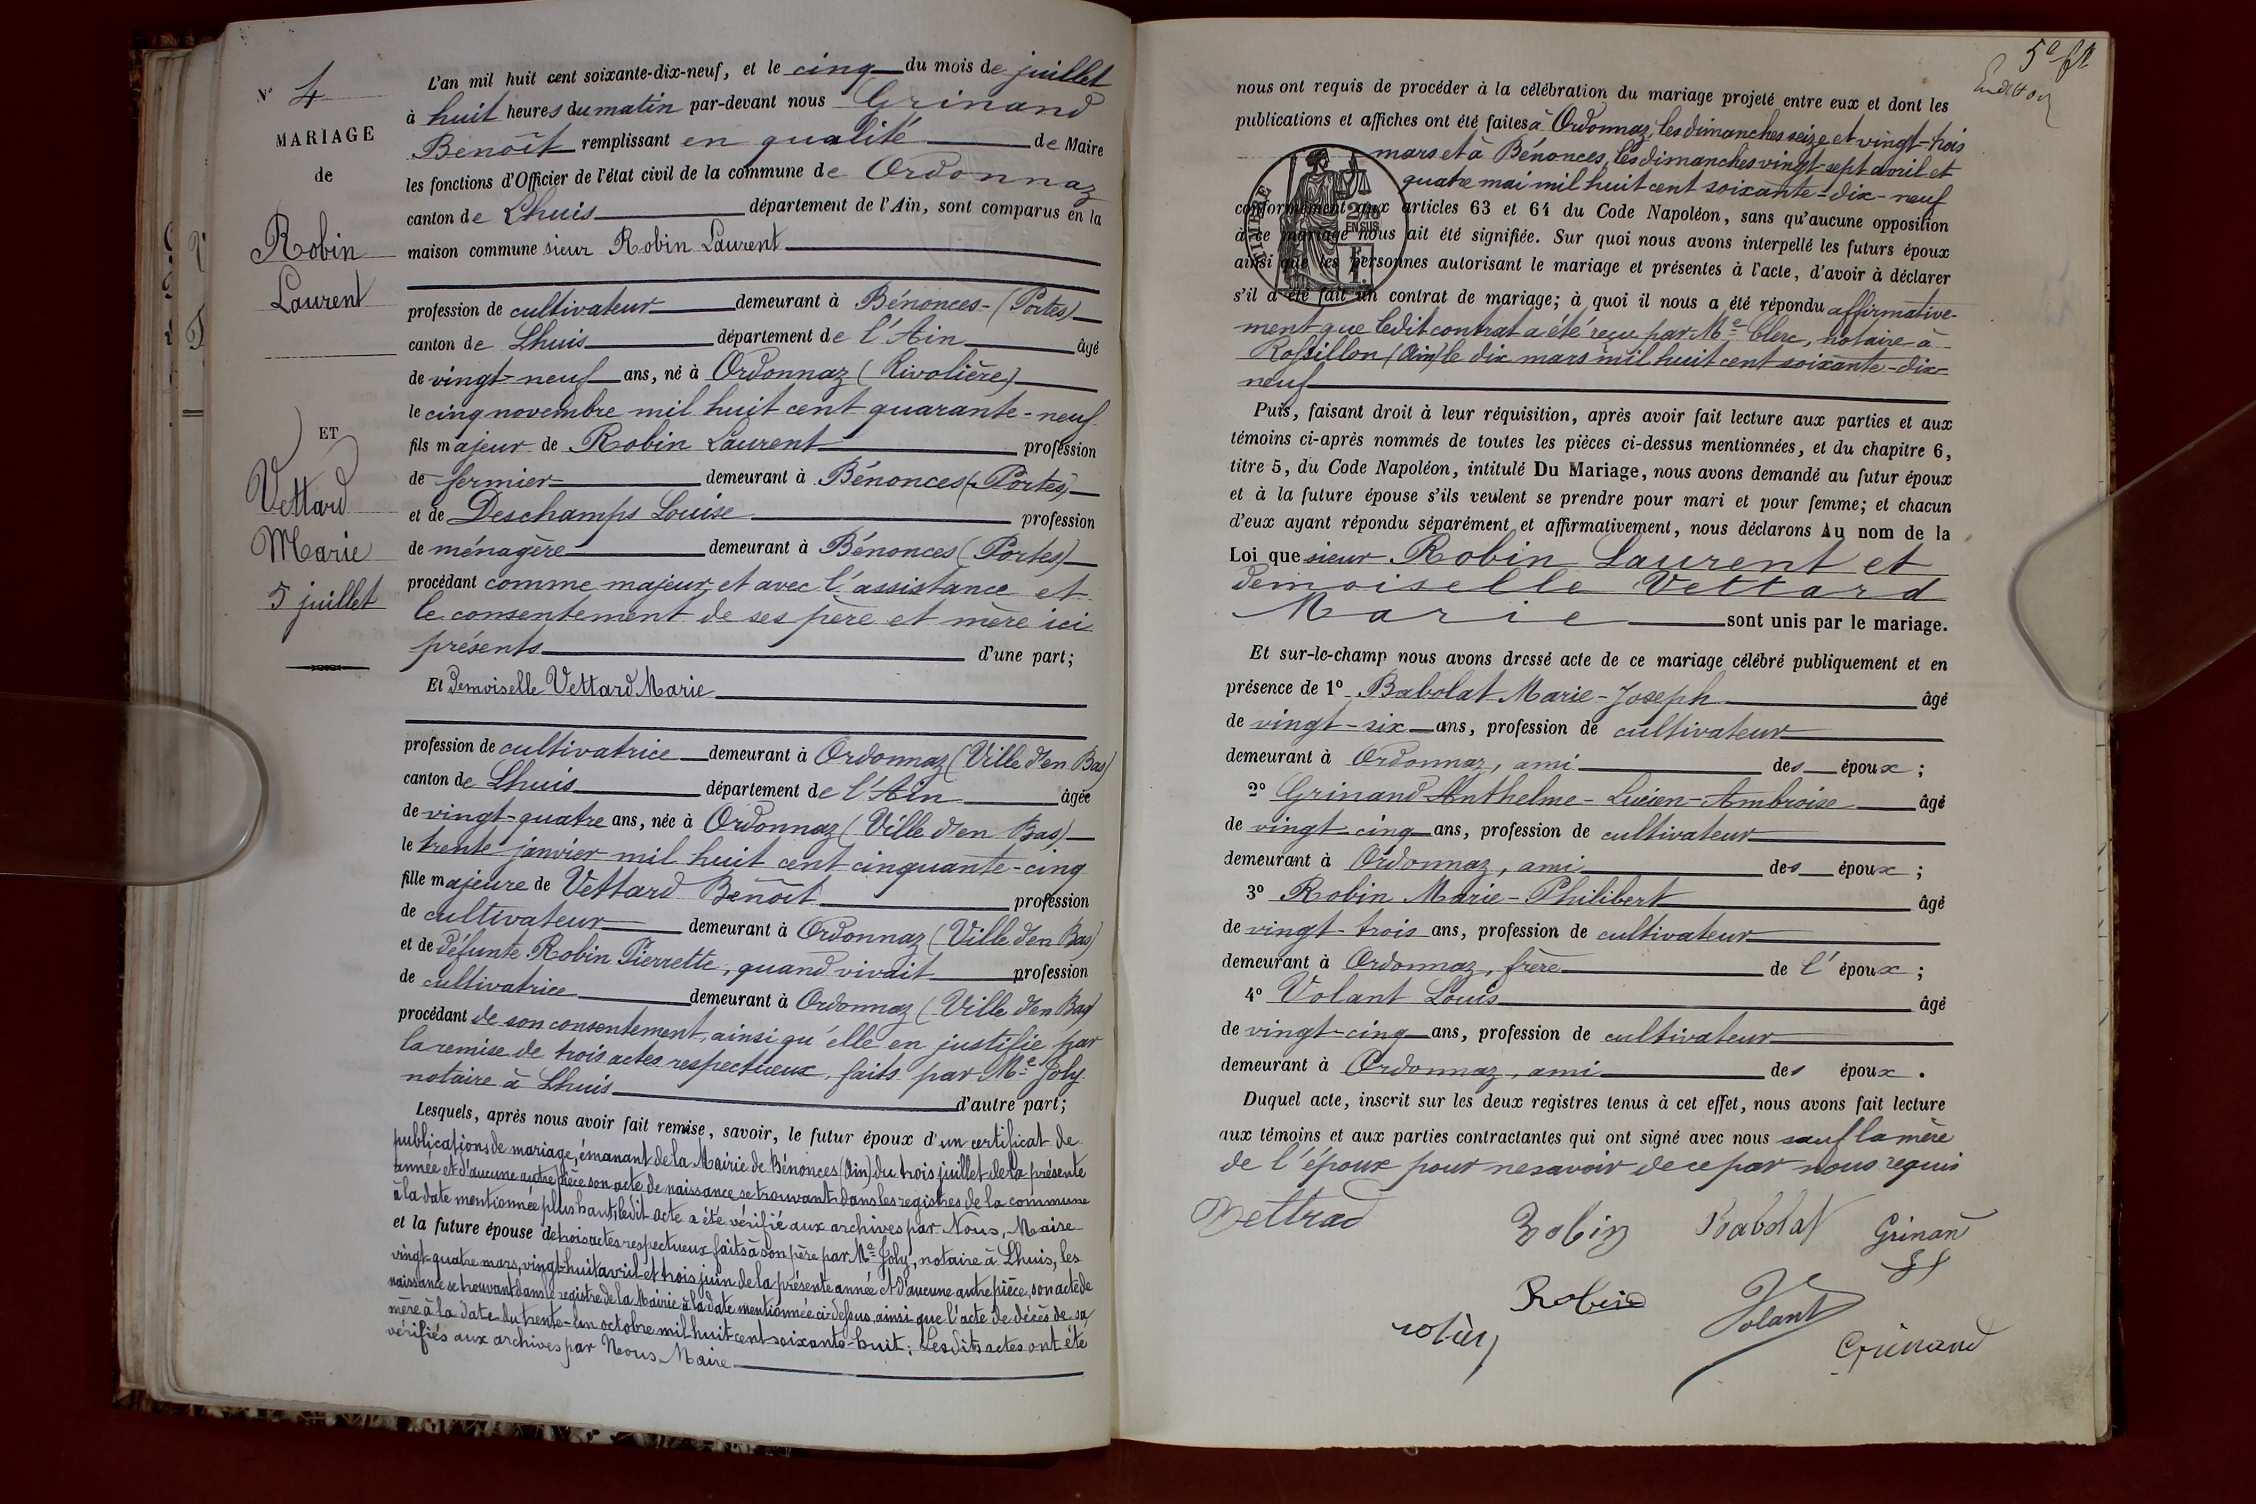 N° 4
MARIAGE
de
Robin
Laurent
ET
Vettard
Marie
5 juillet
L'an mil huit cent soixante-dix-neuf, et le cinq du mois de juillet
à huit heures du matin par-devant nous Grinand
Benoît remplissant en qualité de Maire
les fonctions d'Officier de l'état civil de la commune de Ordonnaz
canton de Lhuis département de l'Ain, sont comparus en la
maison commune sieur Robin Laurent
profession de cultivateur demeurant à Bénonces - (Portes)
canton de Lhuis département de l'Ain âgé
de vingt-neuf ans, né à Ordonnaz (Rivolière)
le cinq novembre mil huit cent quarante-neuf
fils majeur de Robin Laurent profession
de fermier demeurant à Bénonces (Portes)
et de Deschamps Louise profession
de ménagère demeurant à Bénonces (Portes)
procédant comme majeur et avec l'assistance et
le consentement de ses père et mère ici
présents d'une part;
Et demoiselle Vettard Marie
profession de cultivatrice demeurant à Ordonnaz (Ville d'en Bas)
canton de Lhuis département de l'Ain âgée
de vingt-quatre ans, née à Ordonnaz (Ville d'en Bas)
le trente janvier mil huit cent cinquante-cinq
fille majeure de Vettard Benoît profession
de cultivateur demeurant à Ordonnaz (Ville d'en Bas)
et de défunte Robin Pierrette, quand vivait profession
de cultivatrice demeurant à Ordonnaz (Ville d'en Bas)
procédant de son consentement, ainsi qu'elle en justifie par
la remise de trois actes respectueux, faits par Me Joly
notaire à Lhuis d'autre part;
Lesquels, après nous avoir fait remise, savoir, le futur époux d'un certificat de
publications de mariage, émanant de la Mairie de Bénonces (Ain) du trois juillet de la présente
année et d'aucune autre pièce son acte de naissance se trouvant dans les registres de la commune
à la date mentionnée plus haut, ledit acte a été vérifié aux archives par Nous, Maire
et la future épouse de trois actes respectueux faits à son père par Me Joly, notaire à Lhuis, les
vingt-quatre mars, vingt-huit avril et trois juin de la présente année et d'aucune autre pièce, son acte de
naissance se trouvant dans le registre de la Mairie à la date mentionnée ci-dessus, ainsi que l'acte de décès de sa
mère à la date du trente-un octobre mil huit cent soixante-huit; Lesdits actes ont été
vérifiés aux archives par Nous, Maire
5e ft
nous ont requis de procéder à la célébration du mariage projeté entre eux et dont les
publications et affiches ont été faites à Ordonnaz, les dimanches seize et vingt-trois
mars et à Bénonces, les dimanches vingt-sept avril et
quatre mai mil huit cent soixante-dix-neuf
TIMBRE
2/10
EN SUS
conformément aux articles 63 et 64 du Code Napoléon, sans qu'aucune opposition
à ce mariage nous ait été signifiée. Sur quoi nous avons interpellé les futurs époux
ainsi que les personnes autorisant le mariage et présentes à l'acte, d'avoir à déclarer
s'il a été fait un contrat de mariage; à quoi il nous a été répondu affirmative-
ment que ledit contrat a été reçu par Me Clerc, notaire à
Rossillon (Ain) le dix mars mil huit cent soixante-dix-
neuf
Puis, faisant droit à leur réquisition, après avoir fait lecture aux parties et aux
témoins ci-après nommés de toutes les pièces ci-dessus mentionnées, et du chapitre 6,
titre 5, du Code Napoléon, intitulé Du Mariage, nous avons demandé au futur époux
et à la future épouse s'ils veulent se prendre pour mari et pour femme; et chacun
d'eux ayant répondu séparément et affirmativement, nous déclarons Au nom de la
Loi que sieur Robin Laurent et
demoiselle Vettard
Marie sont unis par le mariage.
Et sur-le-champ nous avons dressé acte de ce mariage célébré publiquement et en
présence de 1° Babolat Marie-Joseph âgé
de vingt-six ans, profession de cultivateur
demeurant à Ordonnaz, ami des époux;
2° Grinand Anthelme-Lucien-Ambroise âgé
de vingt cinq ans, profession de cultivateur
demeurant à Ordonnaz, ami des époux;
3° Robin Marie-Philibert âgé
de vingt-trois ans, profession de cultivateur
demeurant à Ordonnaz, frère de l'époux;
4° Volant Louis âgé
de vingt-cinq ans, profession de cultivateur
demeurant à Ordonnaz, ami des époux.
Duquel acte, inscrit sur les deux registres tenus à cet effet, nous avons fait lecture
aux témoins et aux parties contractantes qui ont signé avec nous sauf la mère
de l'époux pour ne savoir de ce par nous requis
Vettrad Robin Babolat Grinan
Robin Volant
robin Grinand